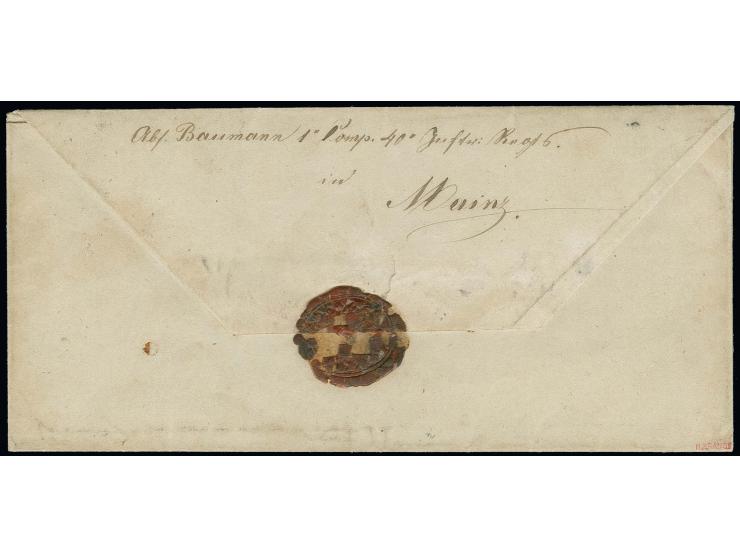 Abs. Baumann 1ᵉ Comp. 40ᵉ Inftr: Regts.
in
Mainz.